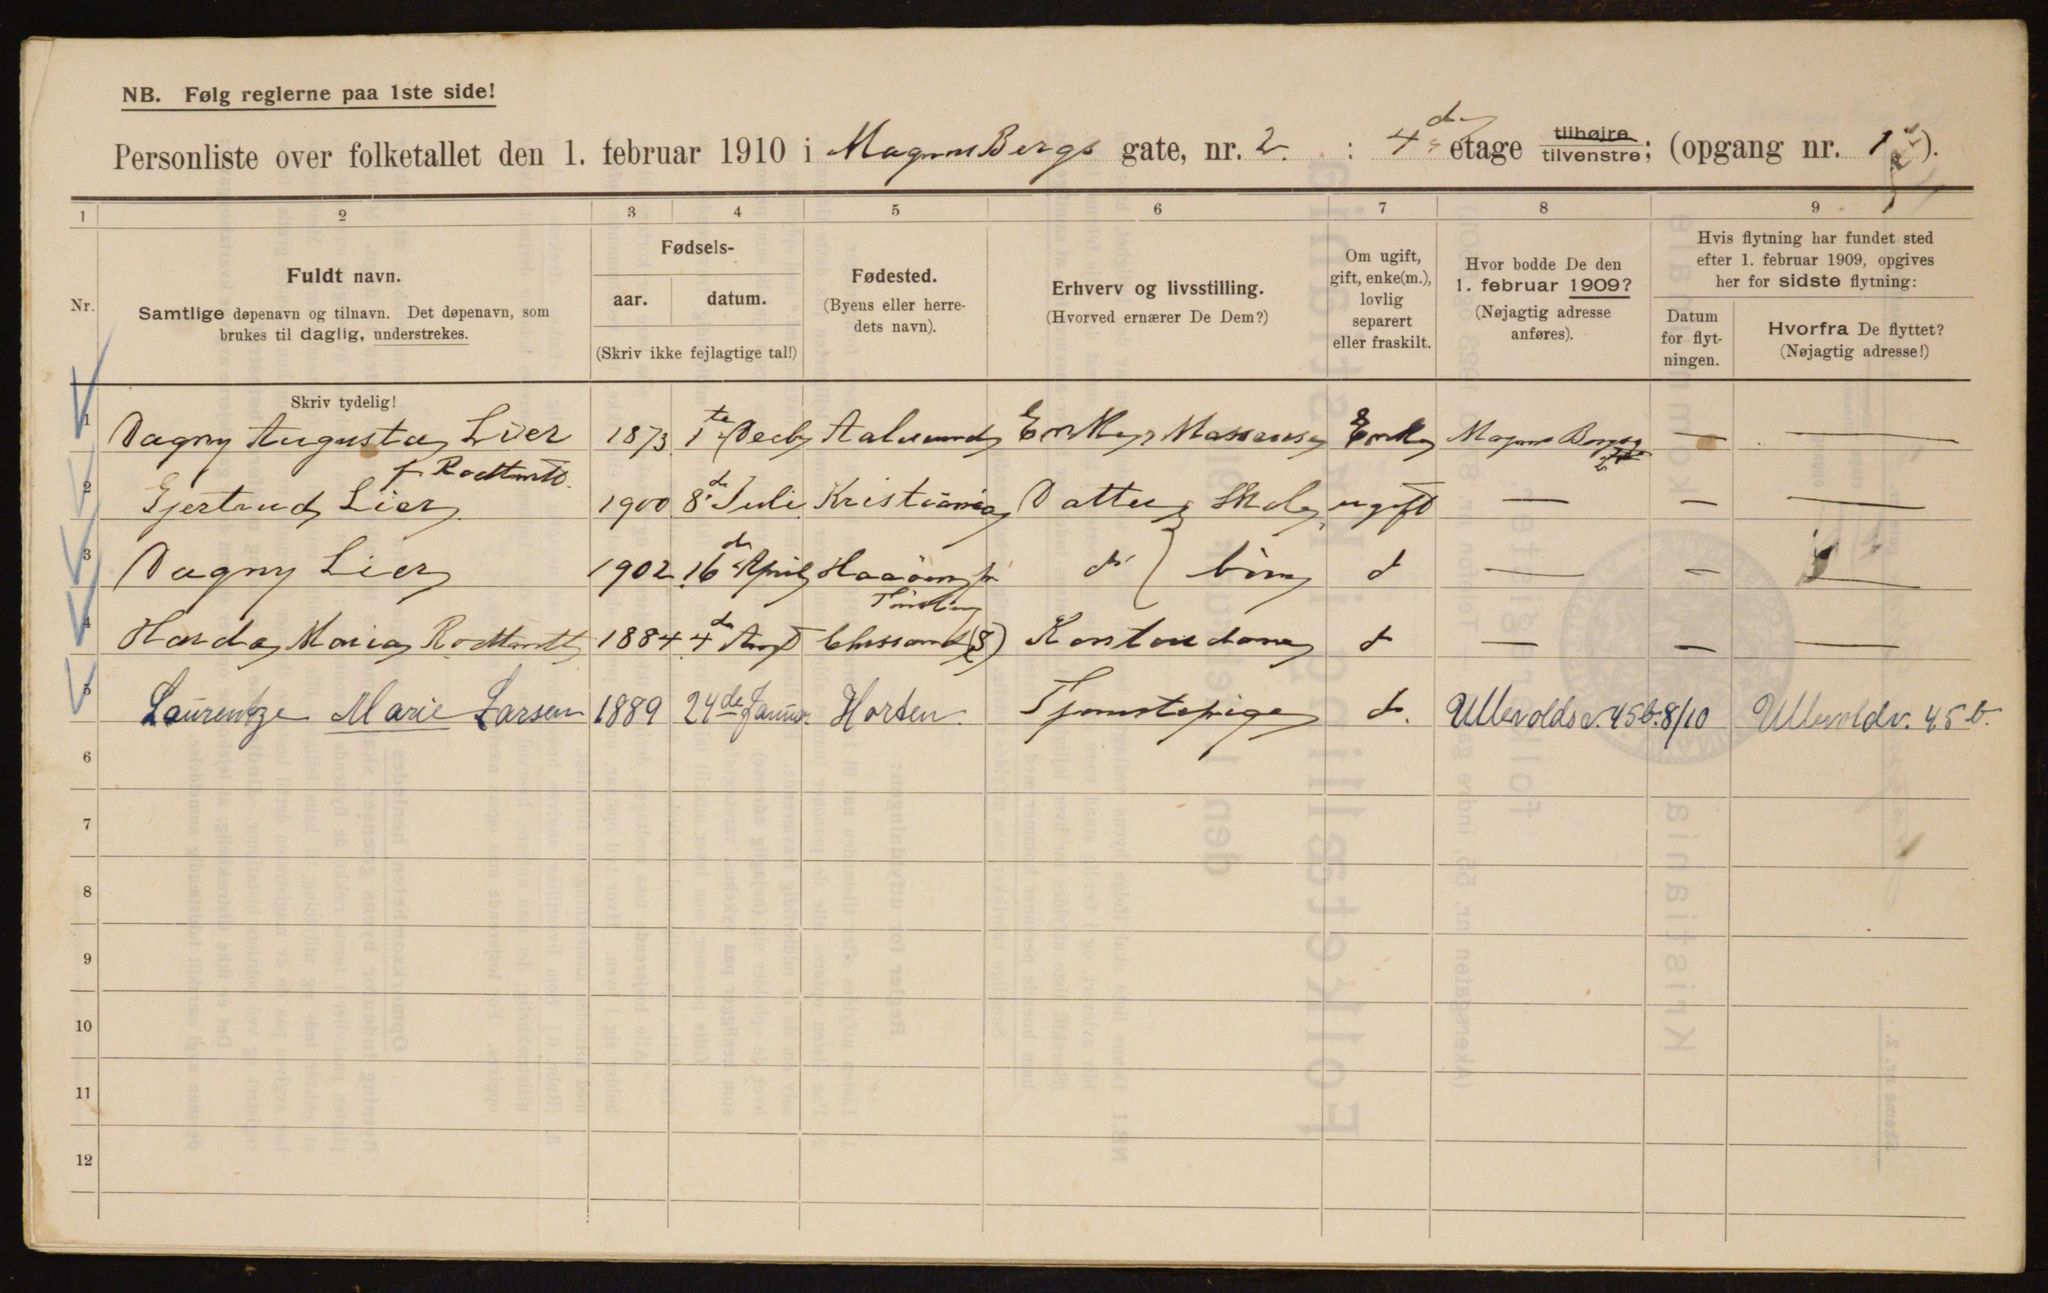 NB. Følg reglerne paa 1ste side!
Personliste over folketallet den 1. februar 1910 i Magnus Bergs gate, nr. 2. : 4de etage tilhøjre tilvenstre; (opgang nr. 1).
1 2 3 4 5 6 7 8 9
Nr.
Fuldt navn.
Samtlige døpenavn og tilnavn. Det døpenavn, som
brukes til daglig, understrekes.
Skriv tydelig!
Fødsels-
aar. datum.
(Skriv ikke fejlagtige tal!)
Fødested.
(Byens eller herre-
dets navn).
Erhverv og livsstilling.
(Hvorved ernærer De Dem?)
Om ugift,
gift, enke(m.),
lovlig
separert
eller fraskilt.
Hvor bodde De den
1. februar 1909?
(Nøjagtig adresse
anføres).
Hvis flytning har fundet sted
efter 1. februar 1909, opgives
her for sidste flytning:
Datum
for flyt-
ningen.
Hvorfra De flyttet?
(Nøjagtig adresse!)
1 Dagny Augusta Lier 1873 1te Decb Aalesund Enke, Enke Magnus Bergsg — —
f. 2
2 Gjertrud Lier 1900 8de Juli Kristiania Datter Skole ugift — — —
3 Dagny Lier 1902 16de April do } do — — —
4 Maria 1884 4de Aug Chrssand (S) Kontordame do — — —
5 Laurentze Marie Larsen 1889 24de Januar Horten Tjenestepige do. Ullevoldsv. 45b. 8/10 Ullevoldv. 45 b.
6
7
8
9
10
11
12